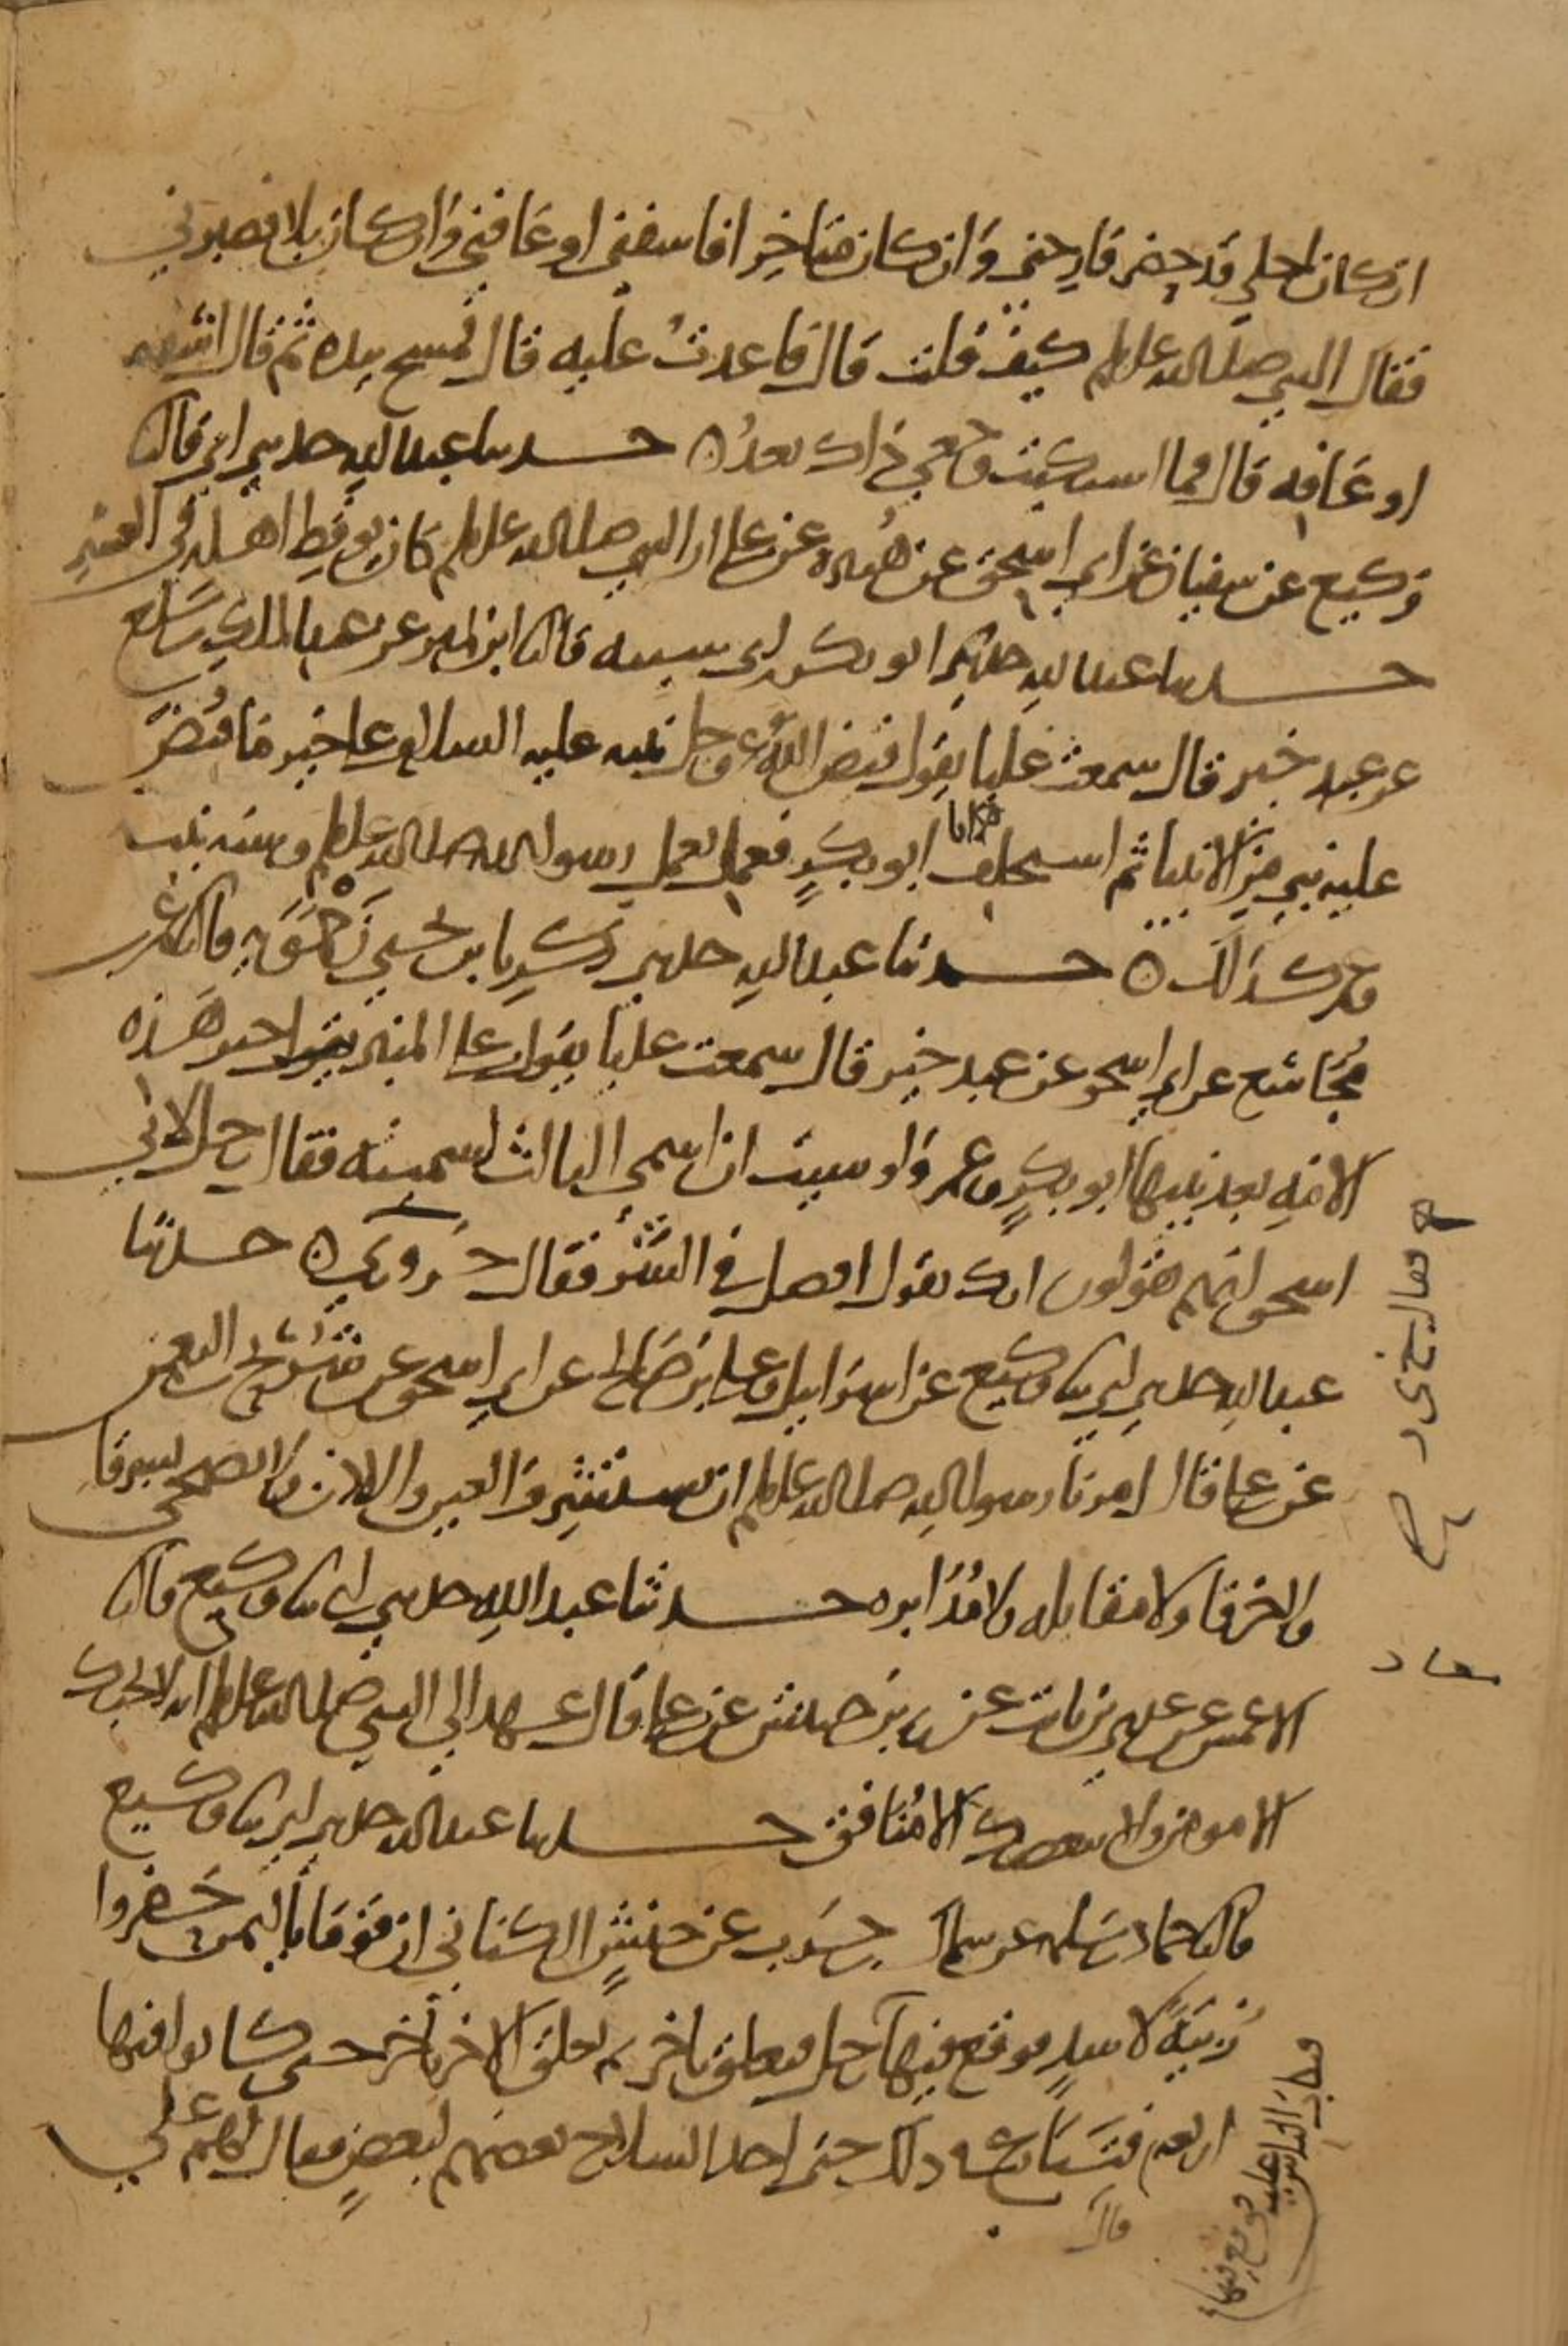 ان كان اجلي قد حضر فارحني وان كان متاخرا فاشفني او عافني وان كان بلا فصبرني
فقال النبي صلى الله عليه وسلم كيف قلت قال فاعدت عليه قال فمسح بيده ثم قال اشفه
او عافه قال فما اشتكيت وجعي ذاك بعد ه حدثنا عبد الله حدثني ابي قال ثنا
وكيع عن سفيان عن ابي اسحق عن هبيره عن علي ان النبي صلى الله عليه وسلم كان يوقظ اهله في العشر
حدثنا عبد الله حدثني ابو بكر بن ابي شيبه قال ثنا ابن نمير عن عبد الملك بن سلع
عن عبد خير قال سمعت عليا يقول قبض الله عز وجل نبيه عليه السلام على خير ما قبض
عليه نبي من الانبيا ثم استخلف ابو بكر فعمل بعمل رسول الله صلى الله عليه وسلم وسنه نبيه
وعمر كذلك ه حدثنا عبد الله حدثني زكريا بن يحيى زحمويه قال ثنا عمر بن
مجاشع عن ابي اسحق عن عبد خير قال سمعت عليا يقول على المنبر خير هذه
الامه بعد نبيها ابو بكر وعمر ولو شيت ان اسمي الثالث لسميته فقال رجل لابي
اسحق انهم يقولون انك تقول افضل في الشر فقال حروري ه حدثنا
عبد الله حدثني ابي ثنا وكيع عن اسرايل وعلي بن صالح عن ابي اسحق عن شريح بن النعمن
عن علي قال امرنا رسول الله صلى الله عليه وسلم ان نستشرف العين والاذن ولا نضحي بشرقا
ولا خرقا ولا مقابله ولا مدابره حدثنا عبد الله حدثني ابي ثنا وكيع قال ثنا
الاعمش عن عدي بن ثابت عن زر بن حبيش عن علي قال عهد الي النبي صلى الله عليه وسلم انه لا يحبك
الا مومن ولا يبغضك الا منافق حدثنا عبد الله حدثني ابي ثنا وكيع
قال ثنا حماد بن سلمه عن سماك بن حرب عن حنش الكناني ان قوما باليمن حفروا
زبيه لاسد فوقع فيها رجل فتعلق باخر ثم تعلق الاخر باخر حتى كانوا فيها
اربعه فتنازع في ذلك حتى اخذ السلاح بعضهم لبعض فقال لهم علي
قال